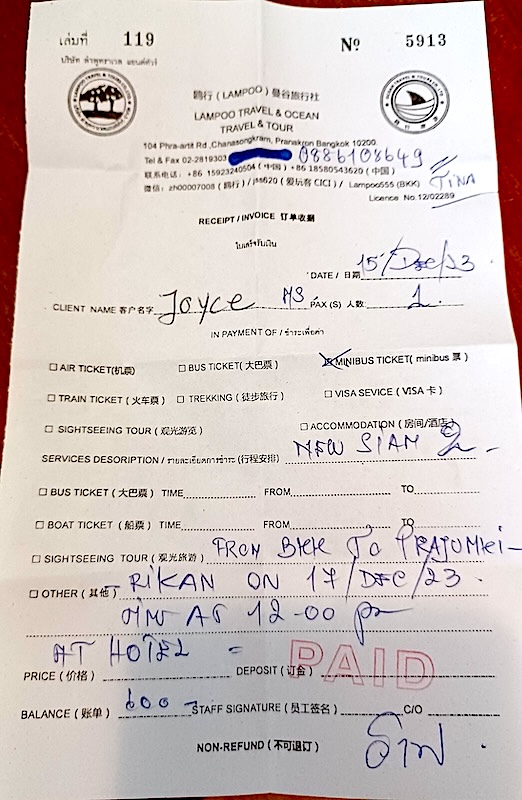 เล่มที่ 119 № 5913
บริษัท ลำพูทราเวล แอนด์ทัวร์
鹍行（LAMPOO）曼谷旅行社
LAMPOO TRAVEL & OCEAN
TRAVEL & TOUR
104 Phra-artit Rd.,Chanasongkram, Pranakron Bangkok 10200.
Tel & Fax 02-2819303 0886108649
联系电话：+86 15923240504 (中国) +86 18580543620 (中国)
微信：zh00007008 (鹍行) / jss620 (爱玩客 CICI) / Lampoo555 (BKK) TINA
Licence No.12/02289
RECEIPT / INVOICE 订单收据
ใบเสร็จรับเงิน
DATE / 日期 15/Dec/23
CLIENT NAME 客户名字 Joyce MS PAX (S) 人数: 1
IN PAYMENT OF / ชำระเพื่อค่า
☐ AIR TICKET(机票) ☐ BUS TICKET(大巴票) ☒ MINIBUS TICKET( minibus 票 )
☐ TRAIN TICKET ( 火车票 ) ☐ TREKKING ( 徒步旅行 ) ☐ VISA SEVICE ( VISA 卡 )
☐ SIGHTSEEING TOUR ( 观光游览 ) ☐ ACCOMMODATION ( 房间/酒店 )
SERVICES DESORIPTION / รายละเอียดการชำระ (行程安排) NEW SIAM 2 -
☐ BUS TICKET ( 大巴票 ) TIME FROM TO
☐ BOAT TICKET ( 船票 ) TIME FROM TO
☐ SIGHTSEEING TOUR ( 观光旅游 ) FROM BKK TO PRAJUMKI-
☐ OTHER ( 其他 ) RIKAN ON 17/DEC/23.
AT 12-00 pm
AT HOTEL -
PRICE ( 价格 ) DEPOSIT ( 订金 ) PAID
BALANCE ( 账单 ) 600 - STAFF SIGNATURE ( 员工签名 ) C/O
NON-REFUND ( 不可退订 )